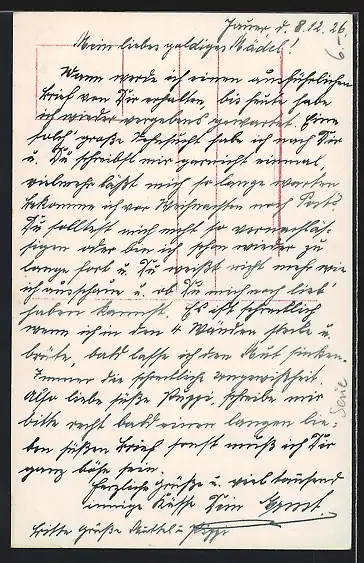 Jauer d. 8.12.26.
Mein liebes goldiges Mädel!
Wann werde ich einen ausführlichen
Brief von Dir erhalten, bis heute habe
ich wieder vergebens gewartet. Eine
solch' große Sehnsucht habe ich nach Dir
u. Du schreibst mir garnicht einmal
vielmehr läßt mich so lange warten
bekomme ich vor Weihnachten noch Post?
Du solltest mich nicht so vernachläs-
sigen oder bin ich schon wieder zu
lange fort u. Du weißt nicht mehr wie
ich ausschaue u. ob Du mich noch lieb
haben kannst. Es ist schrecklich
wenn ich in den 4 Wänden stecke u.
brüte, bald lasse ich den Mut sinken.
Immer die schreckliche Ungewißheit
Also liebe süße Puppi, schreibe mir
bitte recht bald einen langen lie-
ben süßen Brief sonst muß ich Dir
ganz böse sein.
Herzliche Grüße u. viel tausend
innige Küsse Dein Ernst.
Bitte Grüße Muttel u. Pappi
6-